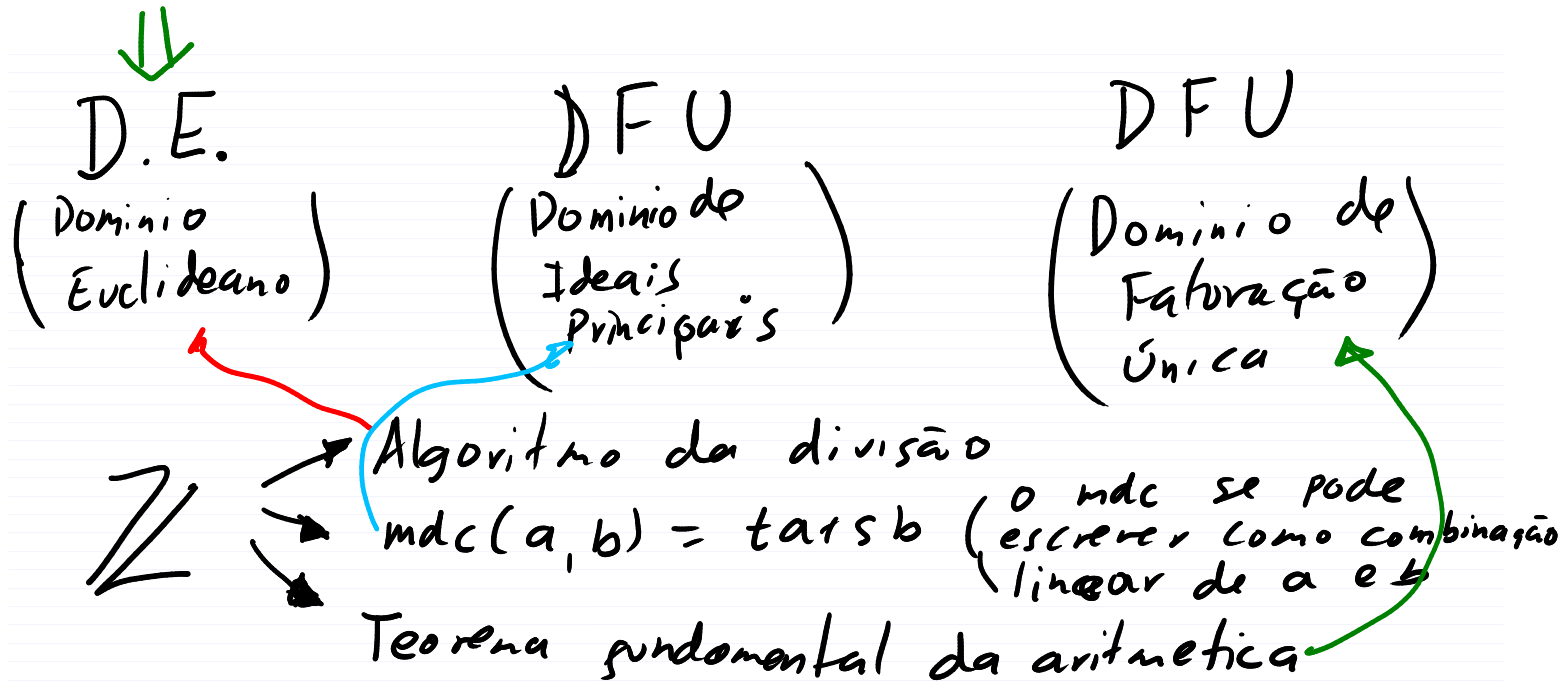 D.E.
(Dominio
Euclideano)
DFU
(Dominio de
Ideais
Principais)
DFU
(Dominio de
Faturação
Única)
Z
Algoritmo da divisão
mdc(a,b) = ta+sb (o mdc se pode
escrever como combinação
linear de a e b
Teorema fundomental da aritmetica